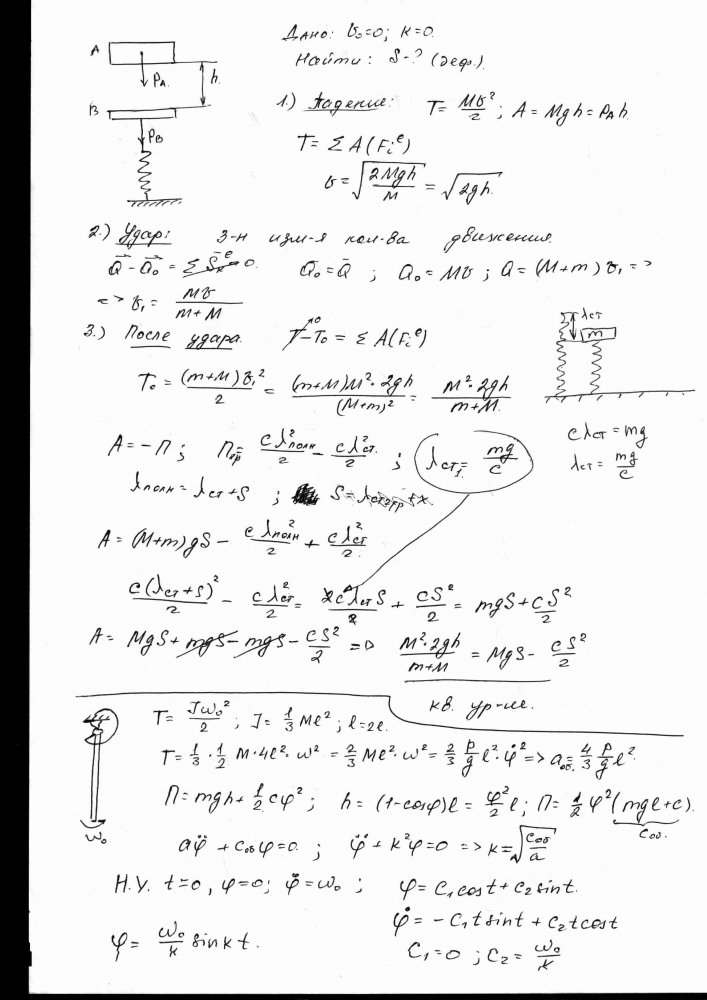 Дано: v₀=0; k=0.
Найти: S-? (деф.).
A
P_A
h.
B
P_B
1.) Падение: T = Mv²/2; A = Mgh = P_A h.
T = Σ A(F_i^e)
v = √(2Mgh/M) = √(2gh).
2.) Удар: З-н изм-я кол-ва движения.
Q̄ - Q̄₀ = Σ S̄_k^e = 0. Q̄₀ = Q̄; Q₀ = Mv; Q = (M+m)v₁ =>
=> v₁ = Mv/(m+M)
3.) После удара. T - T₀ = Σ A(F_i^e)
0
λст
m
T₀ = (m+M)v₁²/2 = (m+M)M²·2gh/(M+m)² = M²·2gh/(m+M).
A = -П; Ппр = cλ²полн/2 - cλ²ст/2; λст₁ = mg/c
cλст = mg
λст = mg/c
λполн = λст + S; S =
A = (M+m)gS - cλполн²/2 + cλст²/2.
c(λст+S)²/2 - cλст²/2 = 2cλстS/2 + cS²/2 = mgS + cS²/2
A = MgS + mgS - mgS - cS²/2 => M²·2gh/(m+M) = MgS - cS²/2
кв. ур-ие.
T = Jω₀²/2; J = 1/3 Ml²; l = 2l.
T = 1/3 · 1/2 M·4l²·ω² = 2/3 Ml²·ω² = 2/3 P/g l²·φ̇² => aоб. = 4/3 P/g l².
П = mgh + 1/2 cφ²; h = (1-cosφ)l = φ²/2 l; П = 1/2 φ²(mgl+c).
Cоб.
ω₀
aφ̈ + cобφ = 0; φ̈ + k²φ = 0 => k = √(Cоб/a)
Н.У. t=0, φ=0; φ̇ = ω₀; φ = C₁cost + C₂sint.
φ̇ = -C₁tsint + C₂tcost
φ = ω₀/k sinkt. C₁ = 0; C₂ = ω₀/k